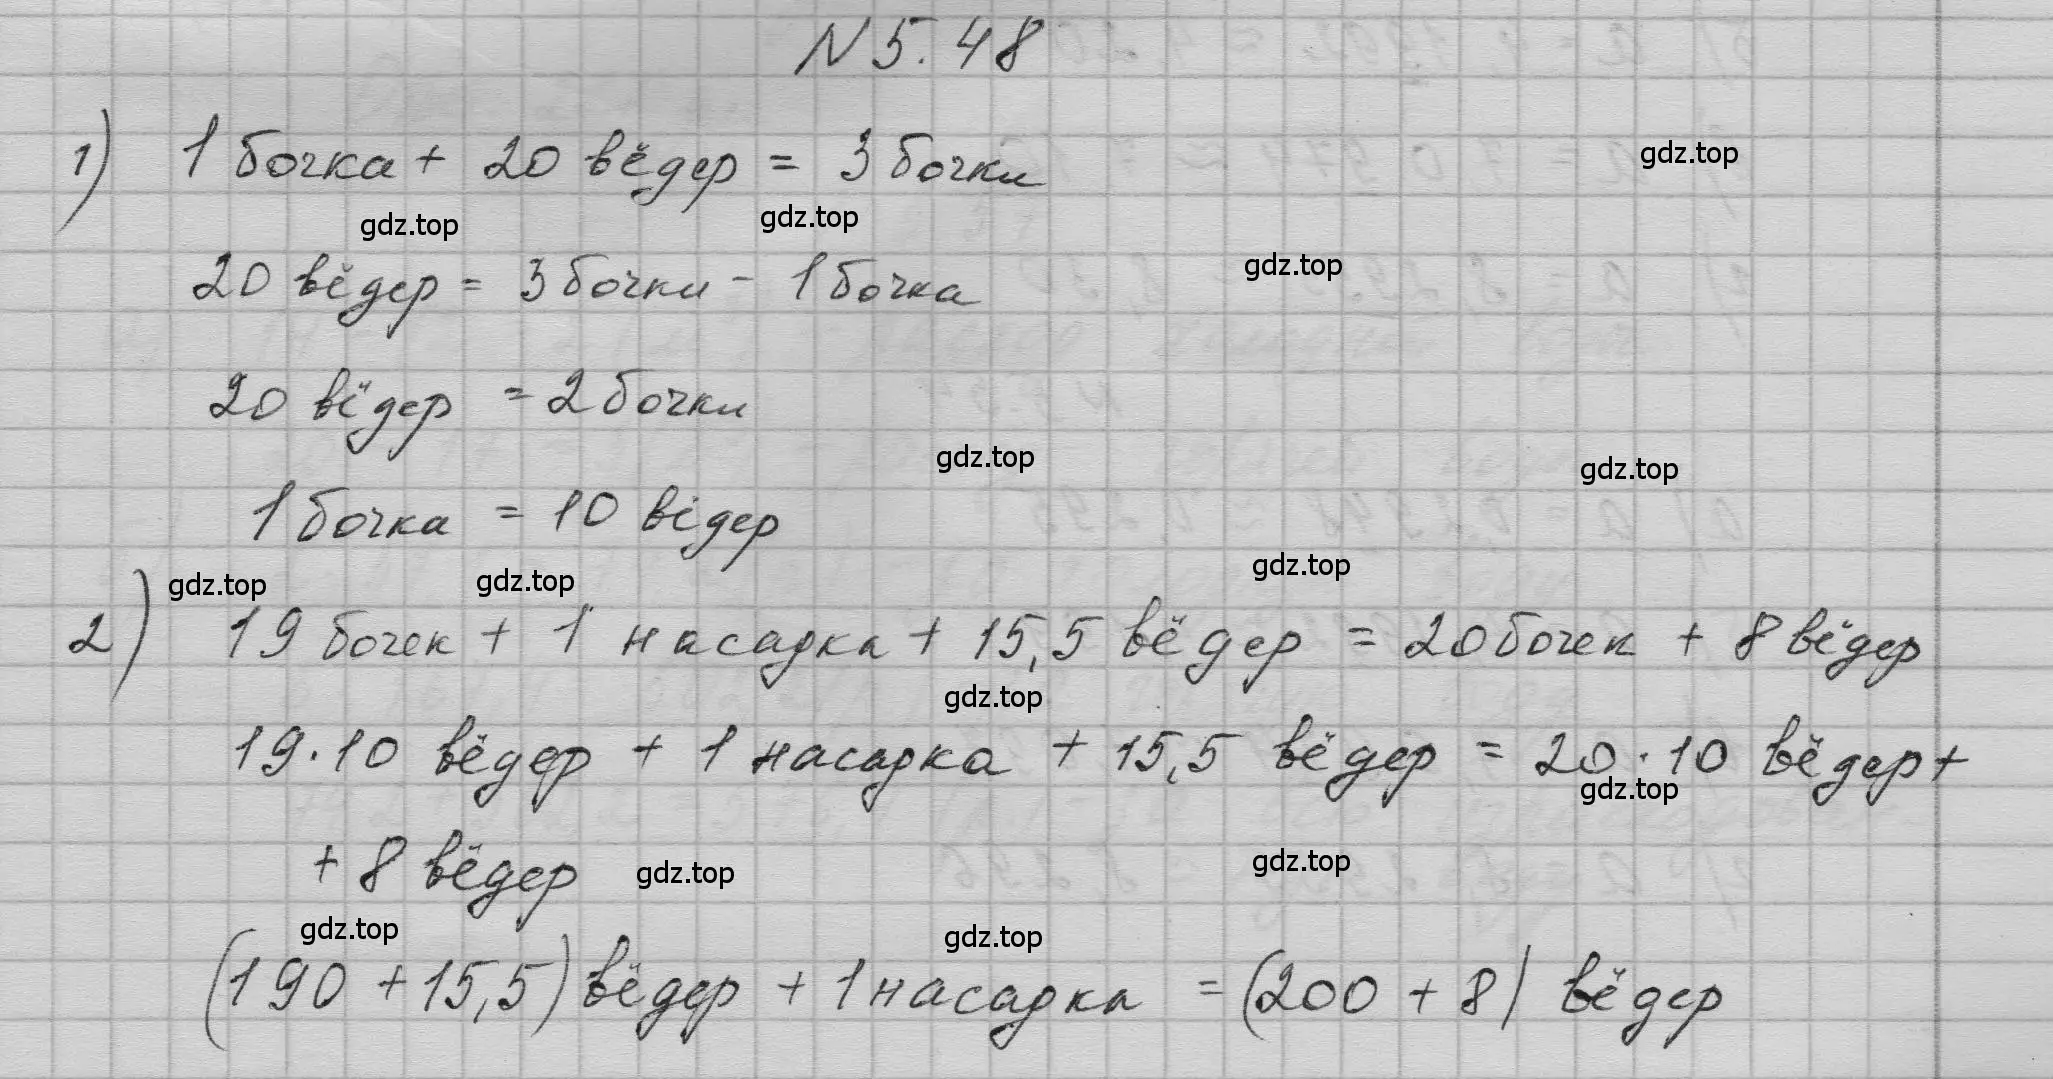 N 5.48
1) 1 бочка + 20 вёдер = 3 бочки
gdz.top
gdz.top gdz.top
20 вёдер = 3 бочки - 1 бочка
gdz.top
20 вёдер = 2 бочки
gdz.top gdz.top
1 бочка = 10 вёдер
gdz.top gdz.top gdz.top
2) 19 бочек + 1 насадка + 15,5 вёдер = 20 бочек + 8 вёдер
gdz.top
19·10 вёдер + 1 насадка + 15,5 вёдер = 20·10 вёдер +
gdz.top
+ 8 вёдер
gdz.top gdz.top
gdz.top gdz.top
(190 + 15,5) вёдер + 1 насадка = (200 + 8) вёдер